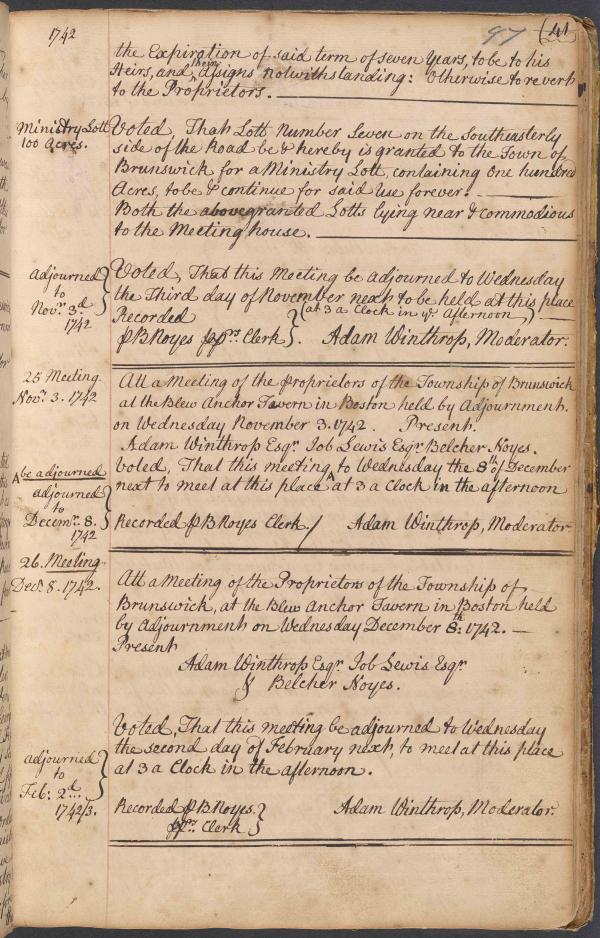 1742
97 (41
the Expiration of said term of seven Years, to be to his
Heirs, and their Assigns notwithstanding: Otherwise to revert
to the Proprietors.
Ministry Lott
100 Acres.
Voted, That Lott Number Seven on the Southeasterly
side of the Road be & hereby is granted to the Town of
Brunswick for a Ministry Lott, containing One hundred
Acres, to be & continue for said Use forever.
Both the abovegranted Lotts lying near & commodious
to the Meeting house.
adjourned
to
Nov.r 3.d
1742
Voted, That this Meeting be adjourned to Wednesday
the Third day of November next to be held at this place
(at 3 a Clock in ye Afternoon)
Recorded
p B Noyes pp.rs Clerk Adam Winthrop, Moderator.
25 Meeting.
Nov.r 3. 1742
Att a Meeting of the proprietors of the Township of Brunswick
at the Blew Anchor Tavern in Boston held by Adjournment.
on Wednesday November 3. 1742. Present.
Adam Winthrop Esq.r Job Lewis Esq.r Belcher Noyes.
^ be adjourned
adjourned
to
Decem.r 8.
1742
Voted, That this meeting ^ to Wednesday the 8.th of December
next to meet at this place at 3 a Clock in the afternoon
Recorded p B Noyes Clerk Adam Winthrop, Moderator
26. Meeting.
Dec.r 8. 1742.
Att a Meeting of the Proprietors of the Township of
Brunswick, at the Blew Anchor Tavern in Boston held
by Adjournment on Wednesday December 8:th 1742.
Present
Adam Winthrop Esq.r Job Lewis Esq.r
& Belcher Noyes.
adjourned
to
Feb: 2.d
1742/3.
Voted, That this meeting be adjourned to Wednesday
the second day of February next, to meet at this place
at 3 a Clock in the afternoon.
Recorded p B Noyes. Adam Winthrop, Moderator.
pp.rs Clerk